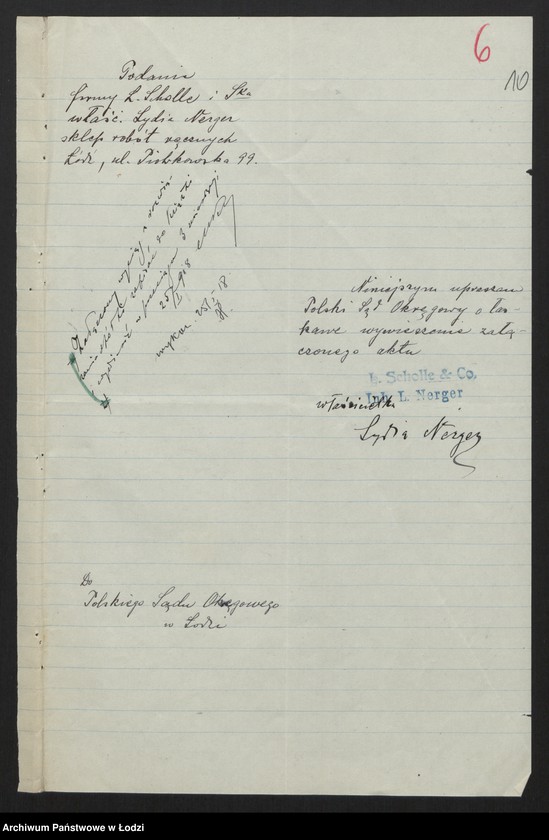 6
10
Podanie
firmy L. Scholle i Ska
właśc. Lydia Nerger
sklep robót ręcznych
Łódź, ul. Piotrkowska 99.
Załączony
w przeciągu 3 miesięcy.
25/I 1918
wykon. 25/I - 18
Niniejszym upraszam
Polski Sąd Okręgowy o łas-
kawe wywieszenie załą-
czonego aktu
L. Scholle & Co,
Inh. L. Nerger
właścicielka
Lydia Nerger
Do
Polskiego Sądu Okręgowego
w Łodzi
Archiwum Państwowe w Łodzi